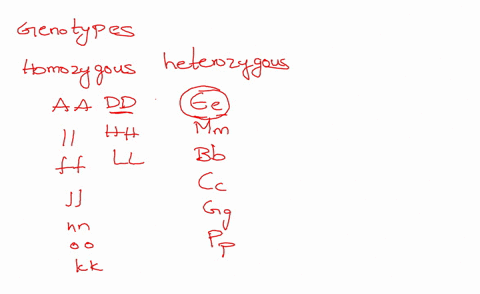 Genotypes
Homozygous heterozygous
AA DD Ee
ll HH Mm
ff LL Bb
JJ Cc
nn Gg
oo Pp
kk